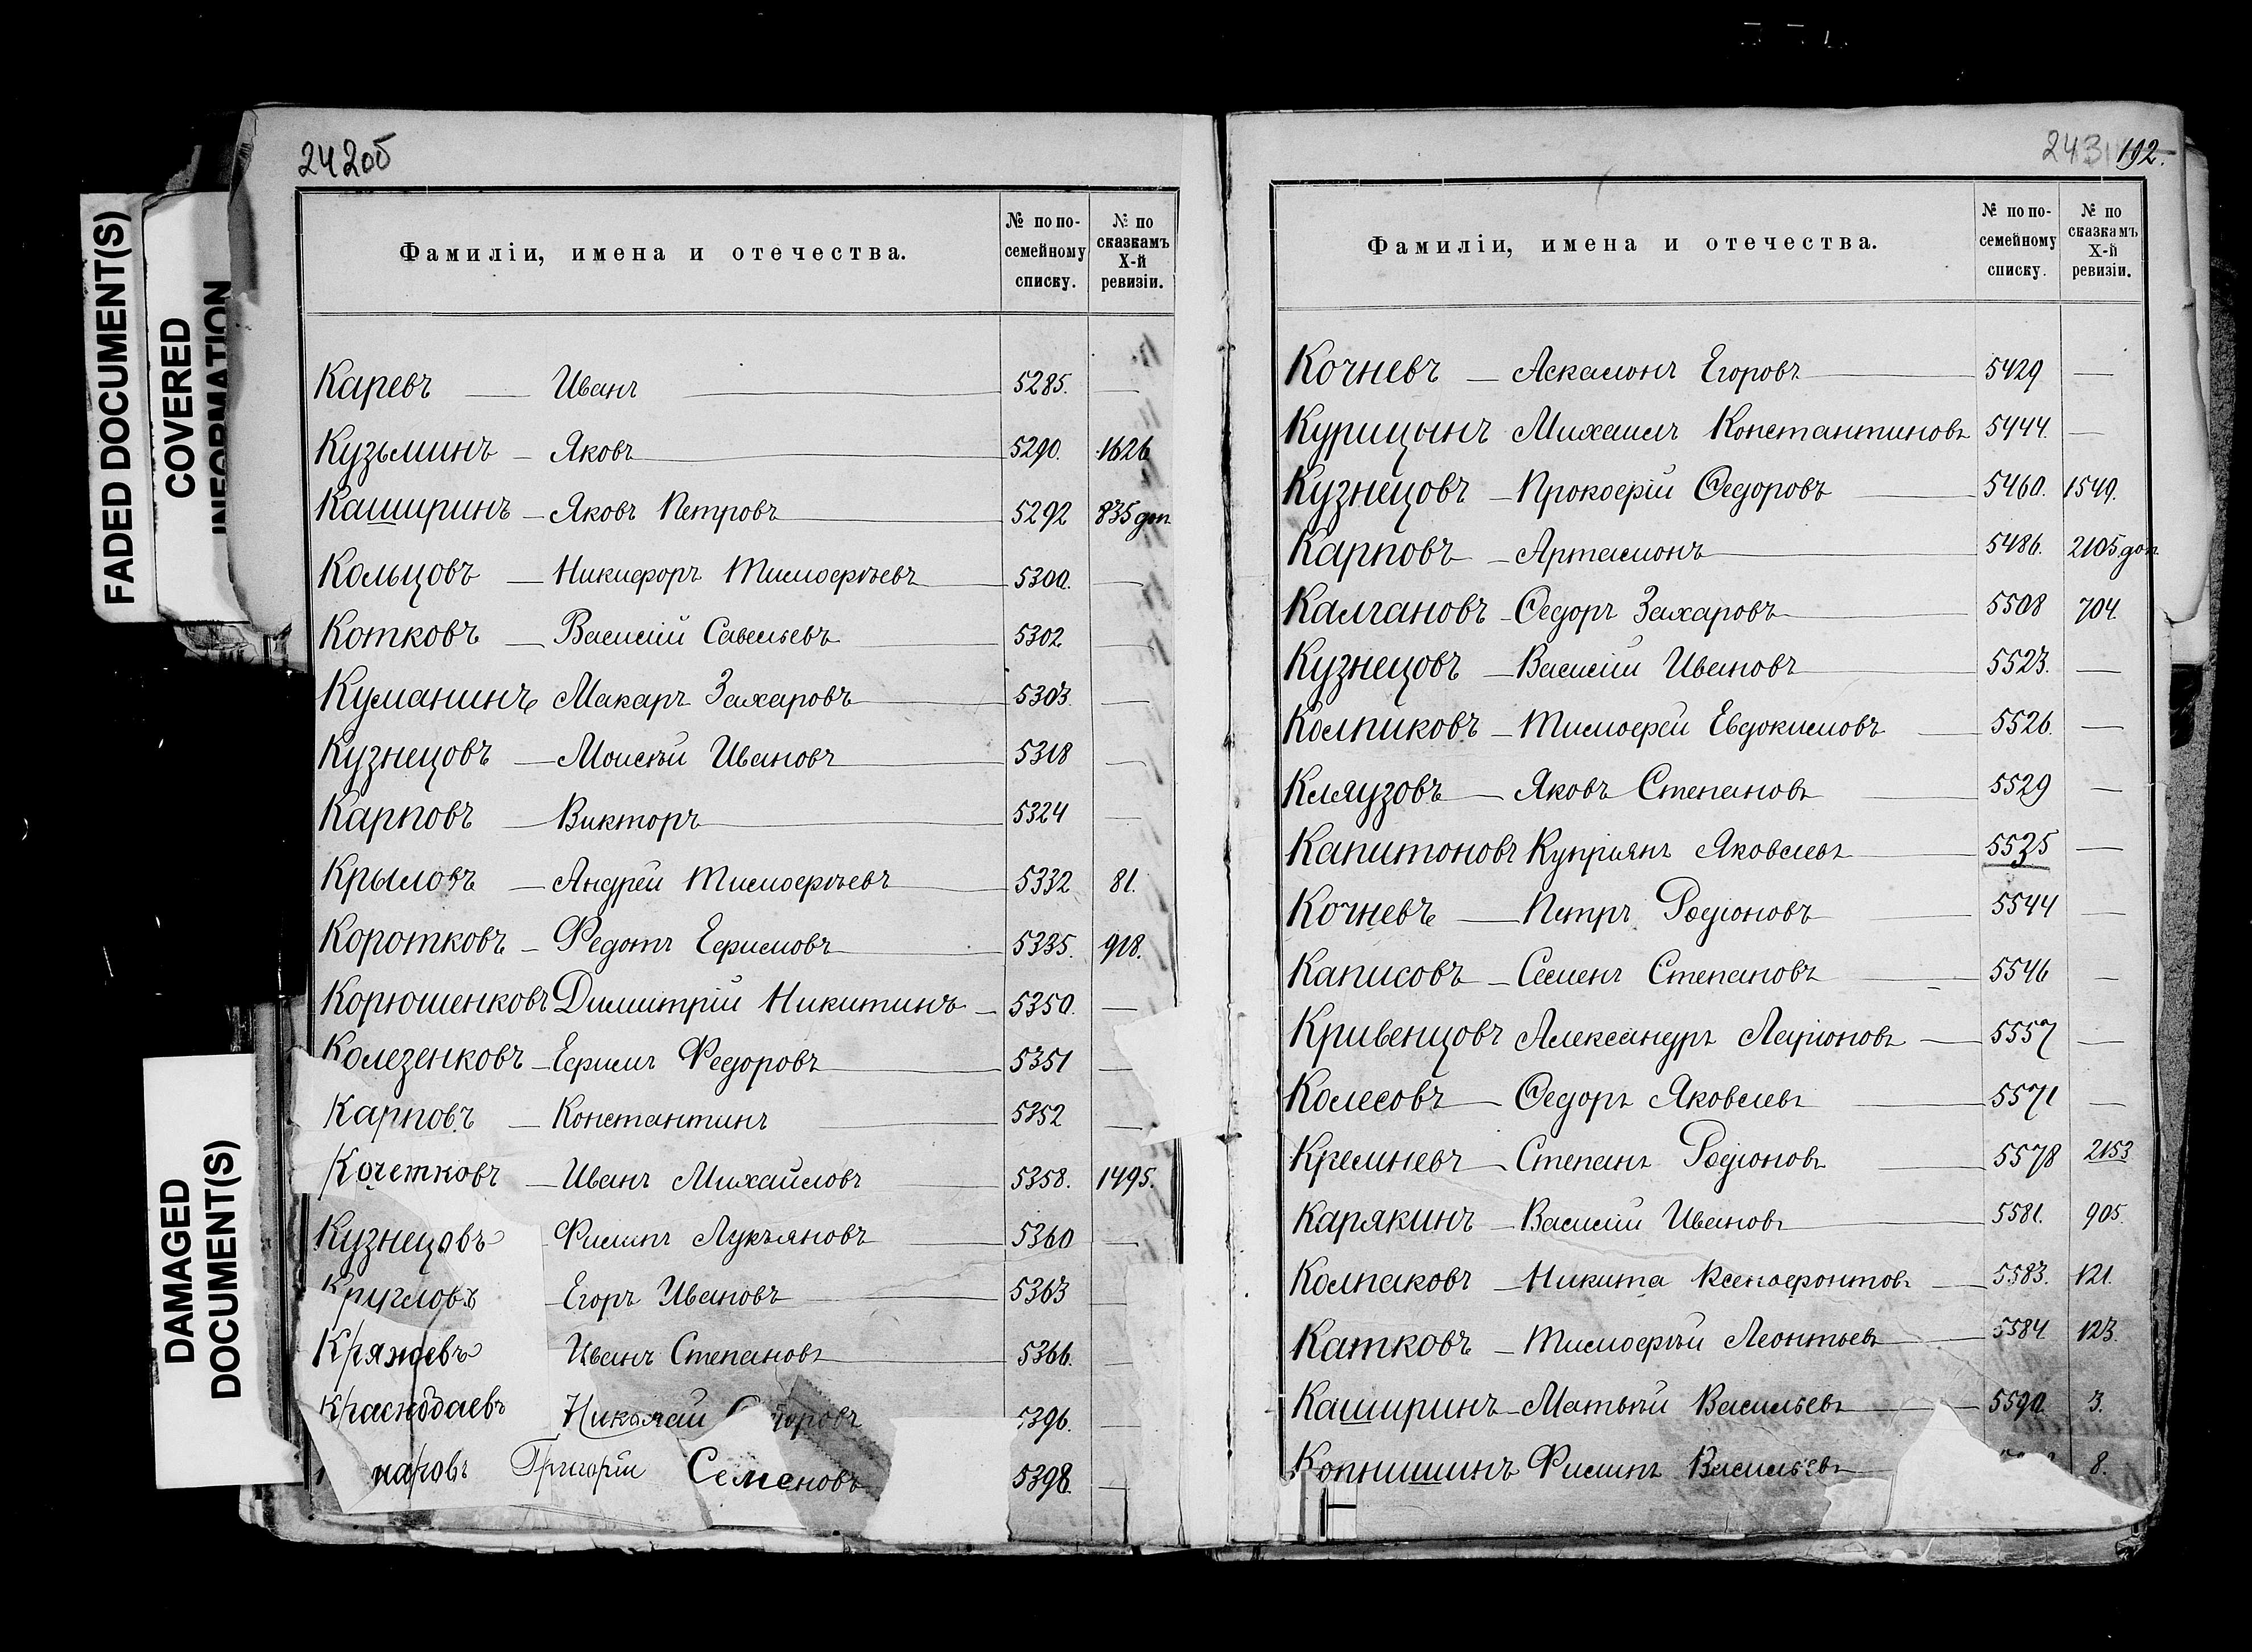 FADED DOCUMENT(S)
COVERED
INFORMATION
DAMAGED
DOCUMENT(S)
242об
Фамиліи, имена и отечества. № по по-семейному списку. № по сказкамъ X-й ревизіи.
Каревъ — Иванъ — 5285. —
Кузьминъ — Яковъ — 5290. 1626
Каширинъ — Яковъ Петровъ — 5292 835 доп
Кольцовъ — Никифоръ Тимофѣевъ — 5300. —
Котковъ — Василій Савельевъ — 5302 —
Куманинъ Макаръ Захаровъ — 5303 —
Кузнецовъ — Моисѣй Ивановъ — 5318 —
Карповъ — Викторъ — 5324 —
Крыловъ — Андрей Тимофѣевъ — 5332 81.
Коротковъ — Федотъ Ефимовъ — 5335. 918.
Корюшенковъ Димитрій Никитинъ — 5350. —
Колезенковъ — Ефимъ Федоровъ — 5351 —
Карповъ — Константинъ — 5352 —
Кочетковъ — Иванъ Михайловъ — 5358. 1495.
Кузнецовъ — Филипъ Лукъяновъ — 5360 —
Кругловъ — Егоръ Ивановъ — 5363 —
Кряжевъ Иванъ Степановъ — 5366. —
Николай 5396. —
Григорій Семеновъ 5398. —
243 192.
Фамиліи, имена и отечества. № по по-семейному списку. № по сказкамъ X-й ревизіи.
Кочневъ — Аскалонъ Егоровъ — 5429 —
Курицынъ Михаилъ Константиновъ 5444. —
Кузнецовъ — Прокофій Ѳедоровъ — 5460. 1549.
Карповъ — Артамонъ — 5486. 2105 доп
Калгановъ — Ѳедоръ Захаровъ — 5508 704.
Кузнецовъ — Василій Ивановъ — 5523. —
Колпиковъ — Тимофей Евдокимовъ — 5526. —
Кляузовъ — Яковъ Степановъ — 5529 —
Капитоновъ Купріянъ Яковлевъ — —
Кочневъ — Петръ Родіоновъ — 5544 —
Каписовъ — Семенъ Степановъ — 5546 —
Кривенцовъ Александръ Ларіоновъ — 5557 —
Колесовъ — Ѳедоръ Яковлевъ — 5571 —
Кремневъ — Степанъ Родіоновъ — 5578 2153
Карякинъ — Василій Ивановъ — 5581. 905.
Колпаковъ — Никита Ксенофонтовъ — 5583. 121.
Катковъ — Тимофѣй Леонтьевъ — 5584 123.
Каширинъ — Матвѣй Васильевъ — 5590. 3.
Копнишинъ Филипъ Васильевъ — 8.